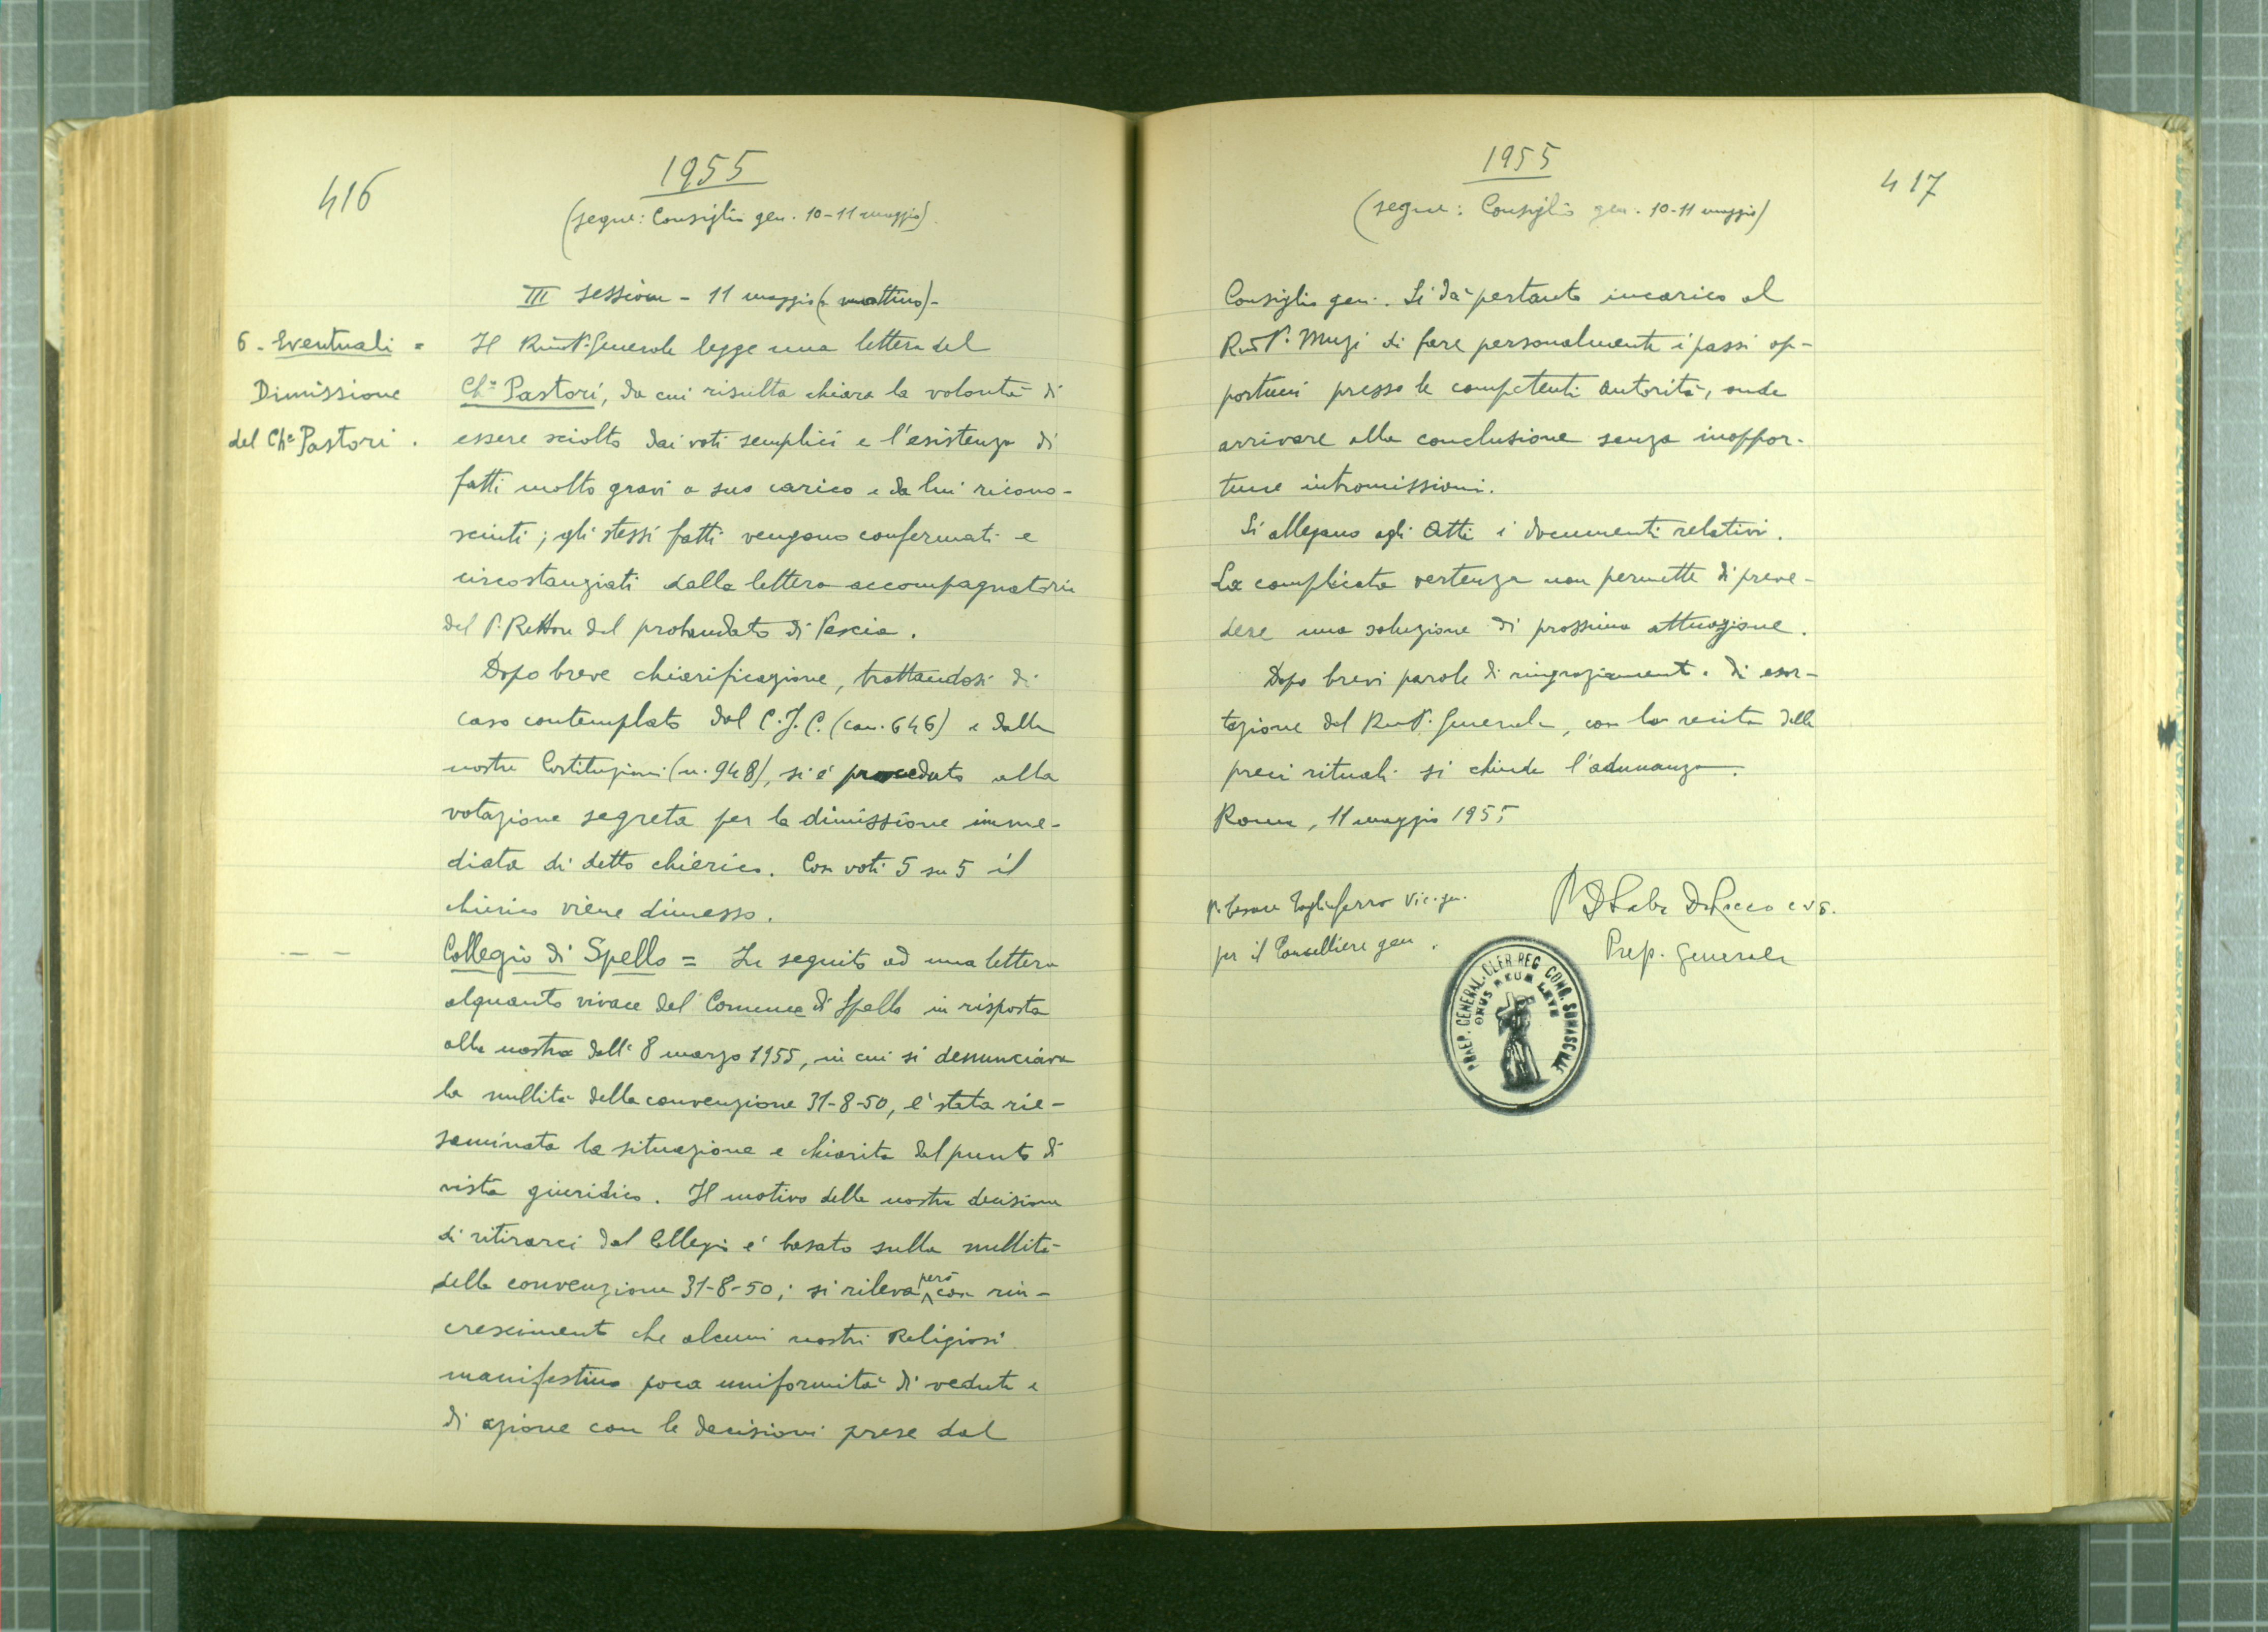 416
1955
(segue: Consiglio gen. 10-11 maggio)
III sessione - 11 maggio (mattino)-
6. Eventuali =
Dimissione
del Ch.co Pastori.
Il Rev.mo P. Generale legge una lettera del
Ch.co Pastori, da cui risulta chiara la volontà di
essere sciolto dai voti semplici e l'esistenza di
fatti molto gravi a suo carico e da lui ricono-
sciuti; gli stessi fatti vengono confermati e
circostanziati dalla lettera accompagnatoria
del P. Rettore del probandato di Pescia.
Dopo breve chiarificazione, trattandosi di
caso contemplato dal C.J.C. (can. 646) e dalle
nostre Costituzioni (n. 948), si è proceduto alla
votazione segreta per la dimissione imme-
diata di detto chierico. Con voti 5 su 5 il
chierico viene dimesso.
- - -
Collegio di Spello = In seguito ad una lettera
alquanto vivace del Comune di Spello in risposta
alla nostra dell'8 marzo 1955, in cui si denunciava
la nullità della convenzione 31-8-50, è stata rie-
saminata la situazione e chiarita dal punto di
vista giuridico. Il motivo della nostra decisione
di ritirarci dal Collegio è basato sulla nullità
della convenzione 31-8-50; si rileva però con rin-
crescimento che alcuni nostri Religiosi
manifestino poca uniformità di vedute e
di azione con le decisioni prese dal
1955
417
(segue: Consiglio gen. 10-11 maggio)
Consiglio gen. Si dà pertanto incarico al
Rev.mo P. Muzi di fare personalmente i passi op-
portuni presso le competenti autorità, onde
arrivare alla conclusione senza inoppor-
tune intromissioni.
Si allegano agli Atti i documenti relativi.
La complicata vertenza non permette di preve-
dere una soluzione di prossima attuazione.
Dopo brevi parole di ringraziamento e di esor-
tazione del Rev.mo P. Generale, con la recita delle
preci rituali si chiude l'adunanza.
Roma, 11 maggio 1955
P. Cesare Tagliaferro Vic. gen.
per il Cancelliere gen.
P. D. Saba De Rocco c.r.s.
Prep. Generale
PRAEP. GENERAL. CLER. REG. CONG. SOMASCHAE
ONUS MEUM LEVE